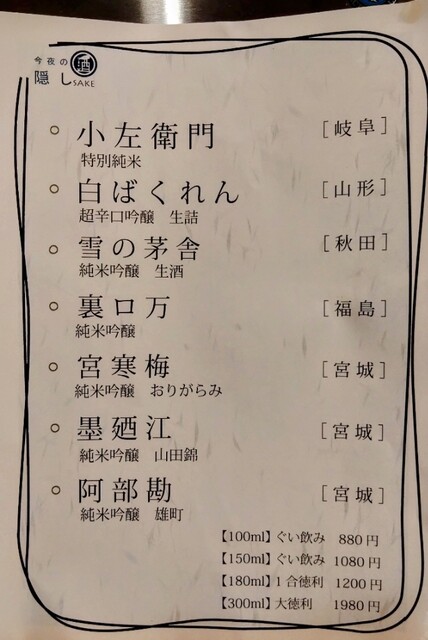 今夜の
隠し酒
SAKE
小左衛門 [岐阜]
特別純米
白ばくれん [山形]
超辛口吟醸 生詰
雪の茅舎 [秋田]
純米吟醸 生酒
裏ロ万 [福島]
純米吟醸
宮寒梅 [宮城]
純米吟醸 おりがらみ
墨廼江 [宮城]
純米吟醸 山田錦
阿部勘 [宮城]
純米吟醸 雄町
【100ml】ぐい飲み 880円
【150ml】ぐい飲み 1080円
【180ml】1合徳利 1200円
【300ml】大徳利 1980円